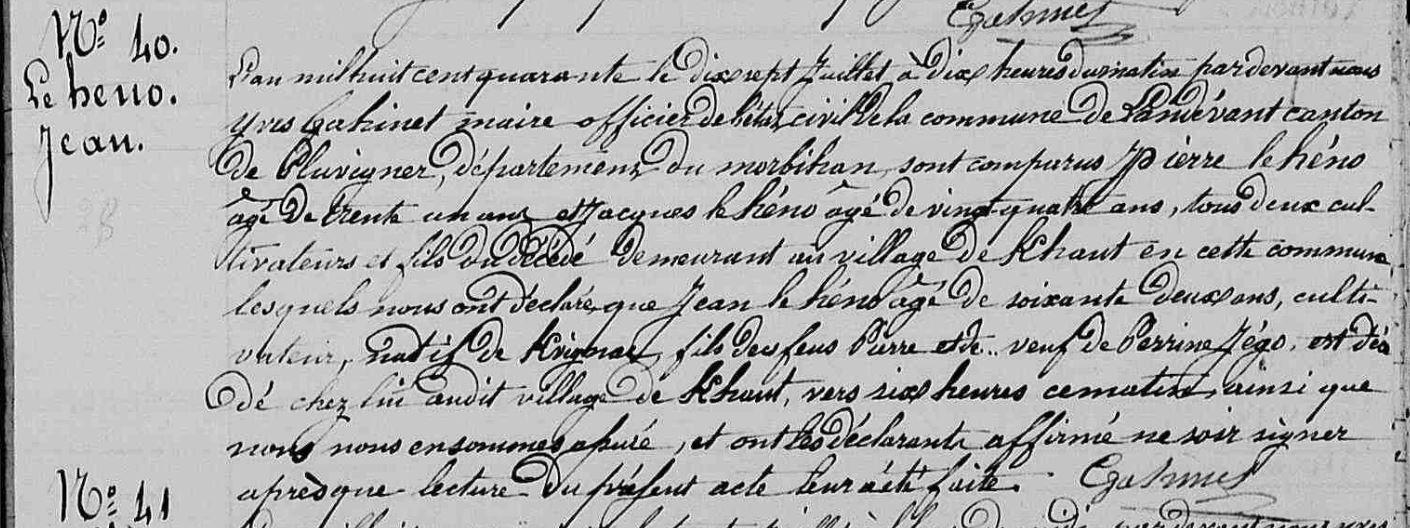 N° 40.
Le heno.
Jean.
L'an mil huit cent quarante le dix sept Juillet à dix heures du matin par devant nous
yves Gahinet maire officier de l'état civil de la commune de Landévant canton
de Pluvigner, département du morbihan, sont comparus pierre le héno
âgé de trente un ans et Jacques le héno âgé de vingt quatre ans, tous deux cul-
tivateurs et fils du décédé demeurant au village de Khaut en cette commune,
lesquels nous ont déclaré que Jean le héno âgé de soixante deux ans, culti-
vateur, natif de fils des feus Pierre et de .. veuf de Perrine Jégo, est décé
dé chez lui audit village de Khaut, vers six heures ce matin, ainsi que
nous nous en sommes assuré, et ont les déclarants affirmé ne soir signer
après que lecture du présent acte leur a été faite. Gahinet
N° 41